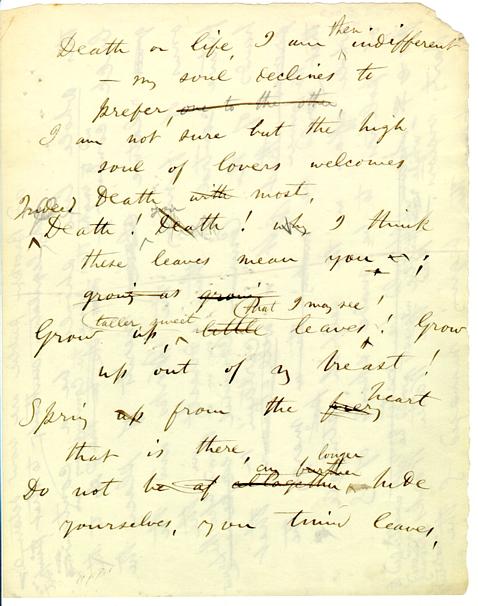 then
Death or life, I am indifferent
— my soul declines to
prefer, one to the other
I am not sure but the high
soul of lovers welcomes
Death with most,
Indeed
Death! Death! why I think
these leaves mean you;
growing as growing
taller sweet that I may see!
Grow up, little leaves! Grow
up out of my breast!
heart
Spring up from the
that is there,
longer
any further
Do not be altogether hide
yourselves, you timid leaves,